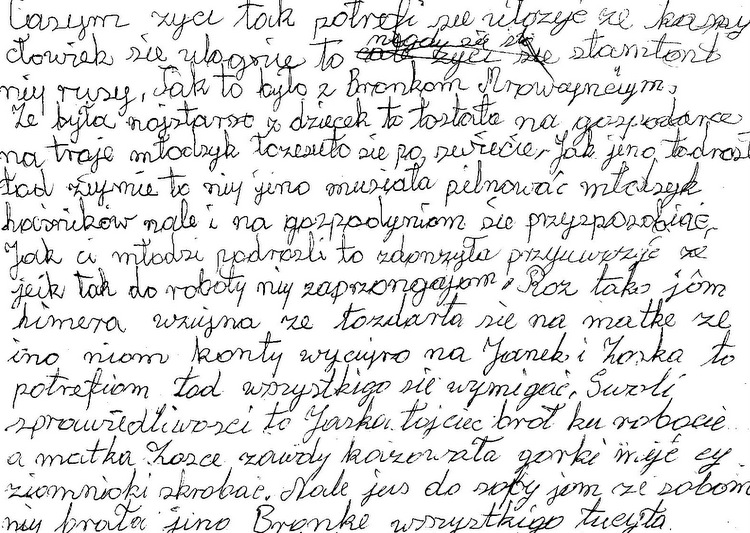 Casym zyci tak potrefi sie ułozyć ze kozdy
cłowiek sie ulognie to nigdy sie stamtond
niy rusy, Tak to było z Bronkom Mrowajncynym.
Ze była nojstarso z dziecek to łostała na gospodarce
na troje młodsyk łozesuło sie po swiecie. Jak jino łodrosła
łod ziymie to niy jino musiała pilnować młodsyk
haśników nale i na gospodyniom sie przysposobiać.
Jak ci młodzi podrośli to zaonzyła przyuwozyć ze
jeik tak do roboty niy zaprzongajom. Roz tako jôm
himera wziyna ze łozdarła sie na matke ze
ino niom konty wyciyro na Janek i Zoska to
potrefiom łod wszystkigo sie wymigać. Swoli
sprawiedliwosci to Jaśka łojciec broł ku robocie
a matka Zosce zawdy kazowała gorki myć cy
ziomnioki skrobać. Nale jus do sopy jom ze sobom
niy brała jino Bronke wszystkigo łucyła